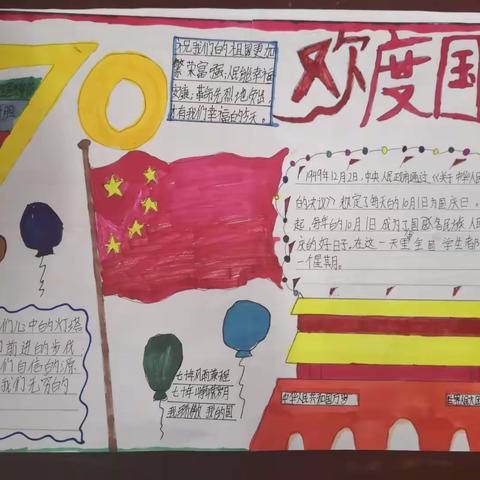 70
欢度国
祝我们的祖国更加
繁荣富强,人民继幸福
安康,革命先烈
我们幸福的
1949年12月2日,中央人民政府通过《关于中华人民
的决议》规定了每年的10月1日为国庆日,
起,每年的10月1日成为了国各民族人民
庆的好日子。在这一天里全国学生
一个星期。
们心中的灯塔
前进的步伐
们自信的源
我们无穷的
七十年风雨兼程
七十年
我骄傲 我的国
中华人民共和国万岁